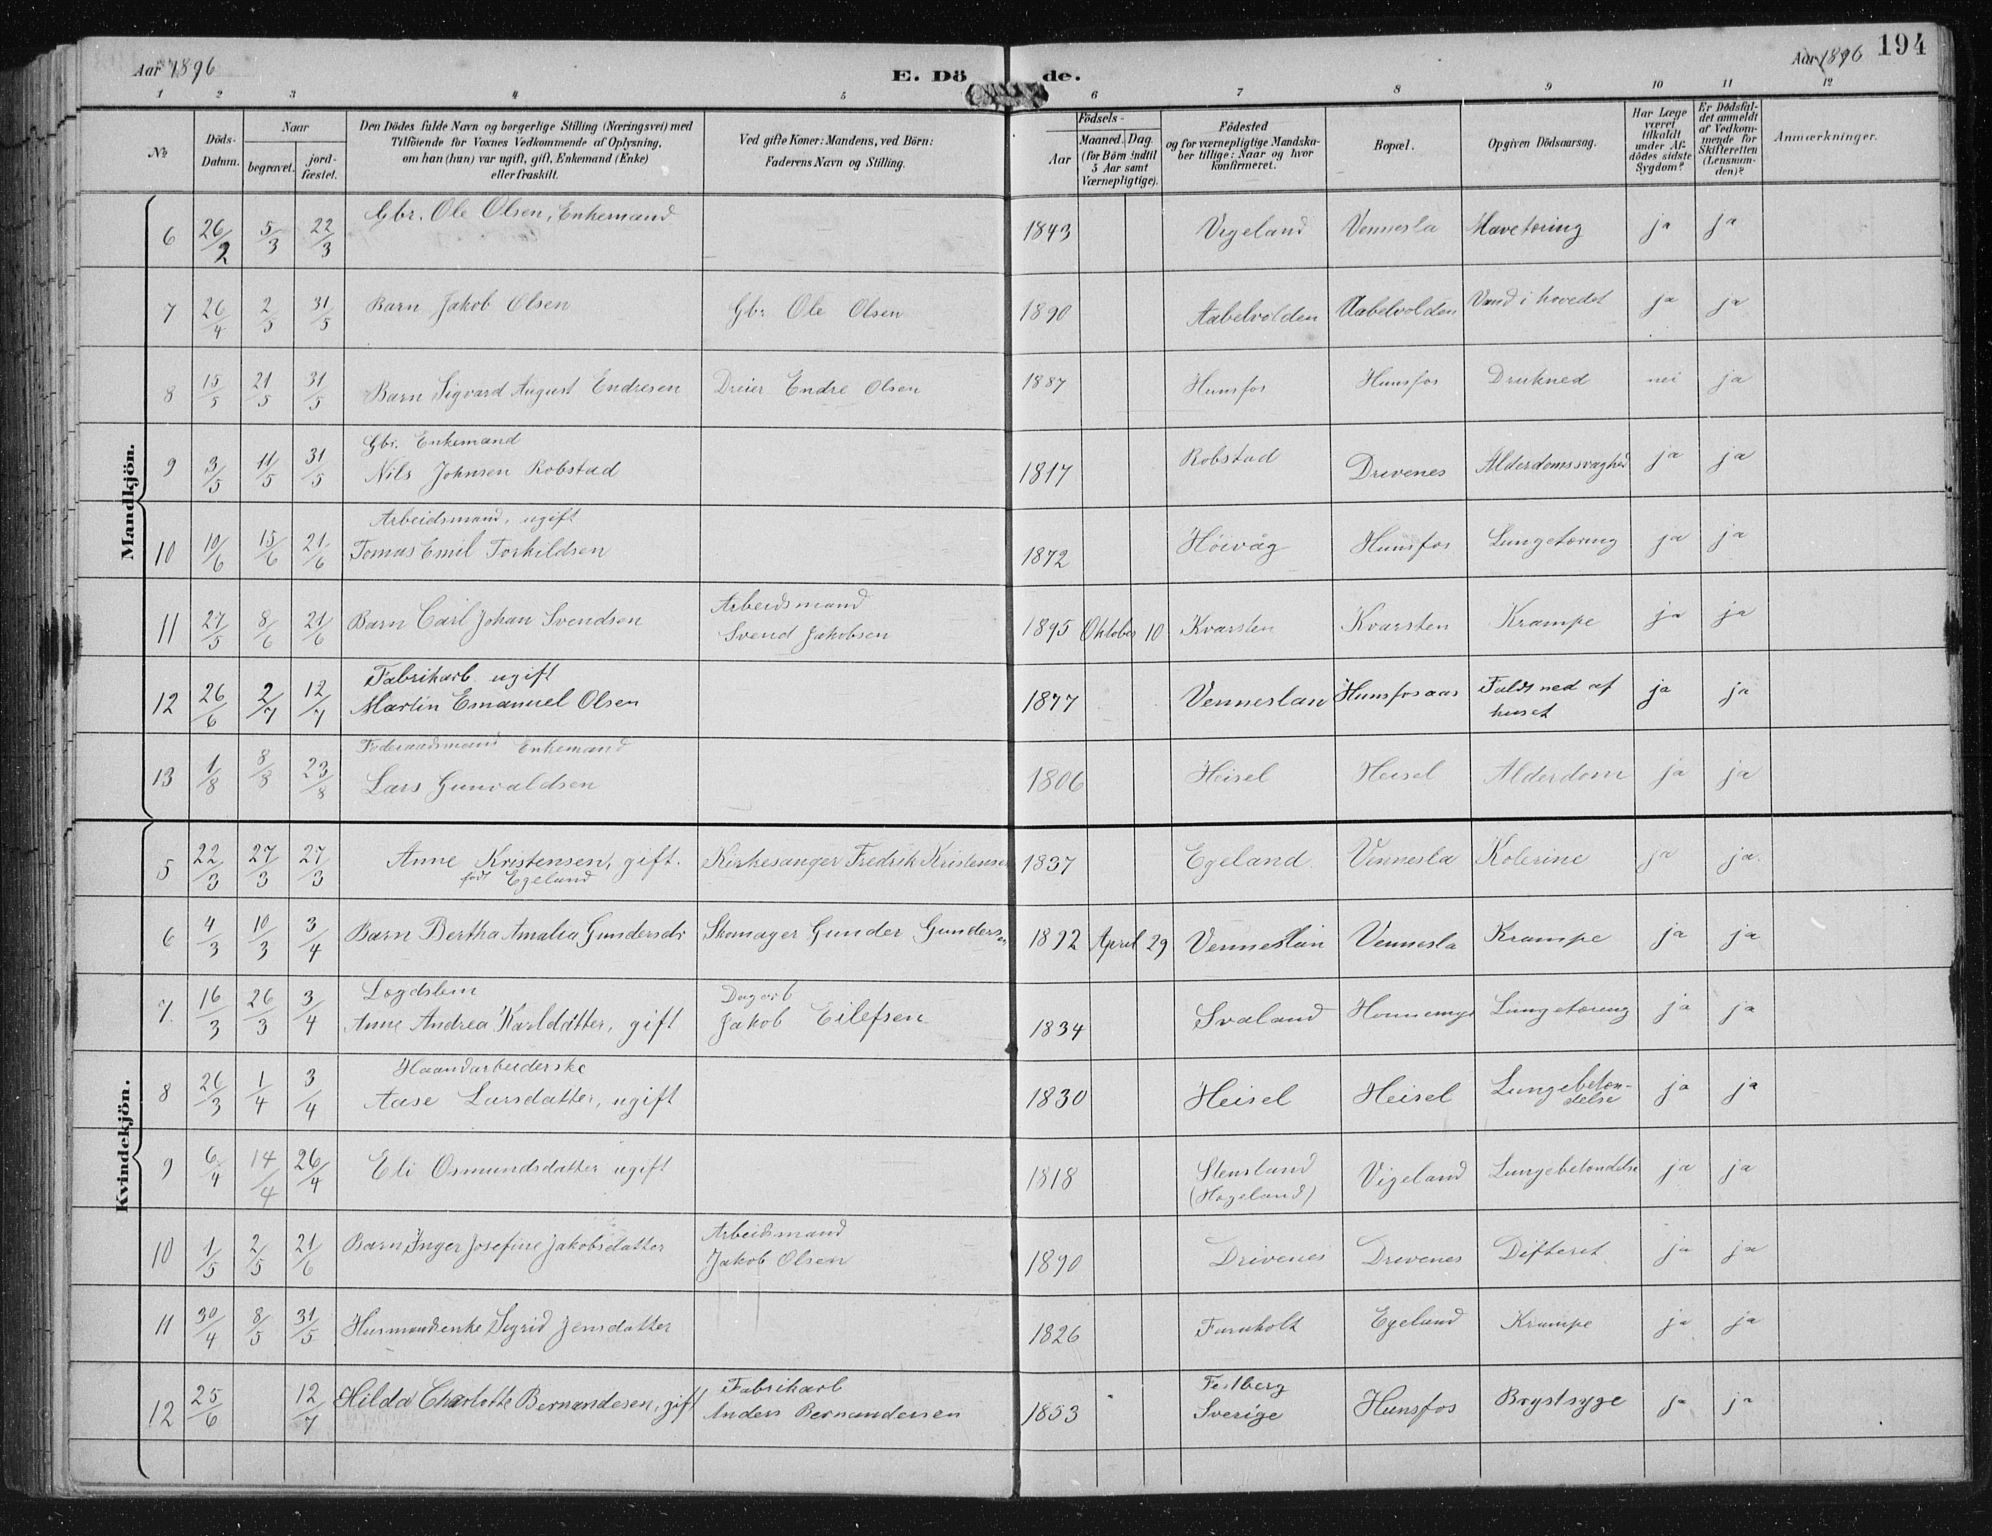 Aar 1896
E. Dö de.
Aar 1896
194
1 2 3 4 5 6 7 8 9 10 11 12
No
Döds-
Datum.
Naar
begravet.
jord-
fæstet.
Den Dödes fulde Navn og borgerlige Stilling (Næringsvei) med
Tilföiende for Voxnes Vedkommende af Oplysning,
om han (hun) var ugift, gift, Enkemand (Enke)
eller fraskilt.
Ved gifte Koner: Mandens, ved Börn:
Faderens Navn og Stilling.
Födsels-
Aar
Maaned. Dag.
(for Börn indtil
5 Aar samt
Værnepligtige).
Födested
og for værnepligtige Mandska-
ber tillige: Naar og hvor
konfirmeret.
Bopæl.
Opgiven Dödsaarsag.
Har Læge
været
tilkaldt
under Af-
dödes sidste
Sygdom?
Er Dödsfal-
det anmeldt
af Vedkom-
mende for
Skifteretten
(Lensman-
den)?
Anmærkninger.
Mandkjön.
6 26/2 5/3 22/3 Gbr. Ole Olsen, Enkemand 1843 Vigeland Vennesla Mavetæring ja ja
7 26/4 2/5 31/5 Barn Jakob Olsen Gbr. Ole Olsen 1890 Aabelvolden Aabelvolden Vand i hovedet ja ja
8 15/5 21/5 31/5 Barn Sigvard August Endresen Dreier Endre Olsen 1887 Hunsfos Hunsfos Drukned nei ja
Gbr. Enkemand
9 3/5 11/5 31/5 Nils Johnsen Robstad 1817 Robstad Drivenes Alderdomssvaghed ja ja
Arbeidsmand, ugift
10 10/6 15/6 21/6 Tomas Emil Torkildsen 1872 Höivåg Hunsfos Lungetæring ja ja
Arbeidsmand
11 27/5 8/6 21/6 Barn Carl Johan Svendsen Svend Jakobsen 1895 Oktober 10 Kvarsten Kvarsten Krampe ja ja
Fabrikarb ugift
12 26/6 2/7 12/7 Martin Emanuel Olsen 1877 Venneslan Hunsfosaas Faldt ned af
huset ja ja
Föderaadsmand Enkemand
13 1/8 8/8 23/8 Lars Gunvaldsen 1806 Heisel Heisel Alderdom ja ja
Kvindekjön.
5 22/3 27/3 27/3 Anne Kristensen, gift. Kirkesanger Fredrik Kristensen 1837 Egeland Vennesla Kolerine ja ja.
født Egeland
6 4/3 10/3 3/4 Barn Bertha Amalia Gundersdr Skomager Gunder Gundersen 1892 April 29 Venneslan Vennesla Krampe ja ja
Lægdslem Dagarb
7. 16/3 26/3 3/4 Anne Andrea Karldatter, gift Jakob Eilefsen 1834 Svaland Lungetæring ja ja
Haandarbeiderske
8 26/3 1/4 3/4 Aase Larsdatter, ugift 1830 Heisel Heisel Lungebetæn-
delse ja ja
9 6/4 14/4 26/4 Eli Osmundsdatter ugift 1818 Stensland
(Hægeland) Vigeland Lungebetændelse ja ja
Arbeidsmand
10 1/5 2/5 21/6 Barn Inger Josefine Jakobsdatter Jakob Olsen 1890 Drivenes Drivenes Difteret ja ja
11 30/4 8/5 31/5 Husmandsenke Sigrid Jensdatter 1826 Furuholt Egeland Krampe ja ja
Fabrikarb
12 25/6 12/7 Hilda Charlotte Bernandesen, gift Anders Bernandersen 1853 Festberg
Sverige Hunsfos Brystsyge ja ja